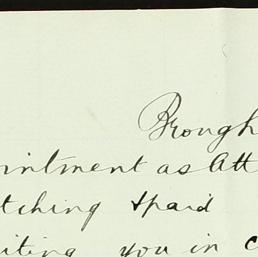 Brough
ointment as Att
tching & paid
iting you in c